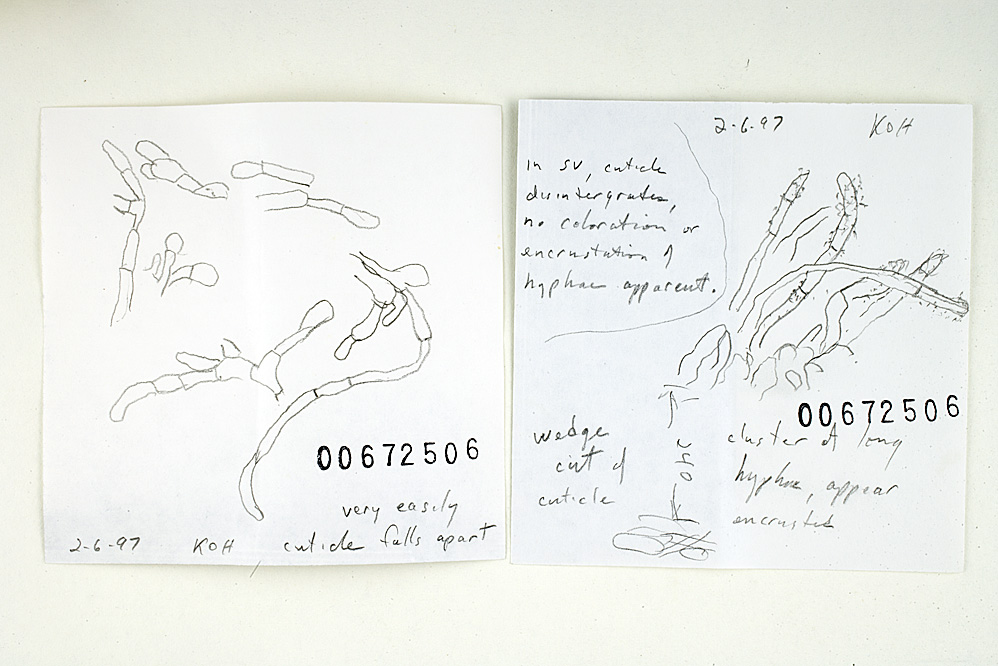 00672506
very easily
cuticle falls apart
2-6-97 KOH
2-6-97 KOH
In SV, cuticle
disintergrates,
no coloration or
encrustation of
hyphae apparent.
00672506
wedge
cut of
cuticle
cluster of long
hyphae, appear
encrusted